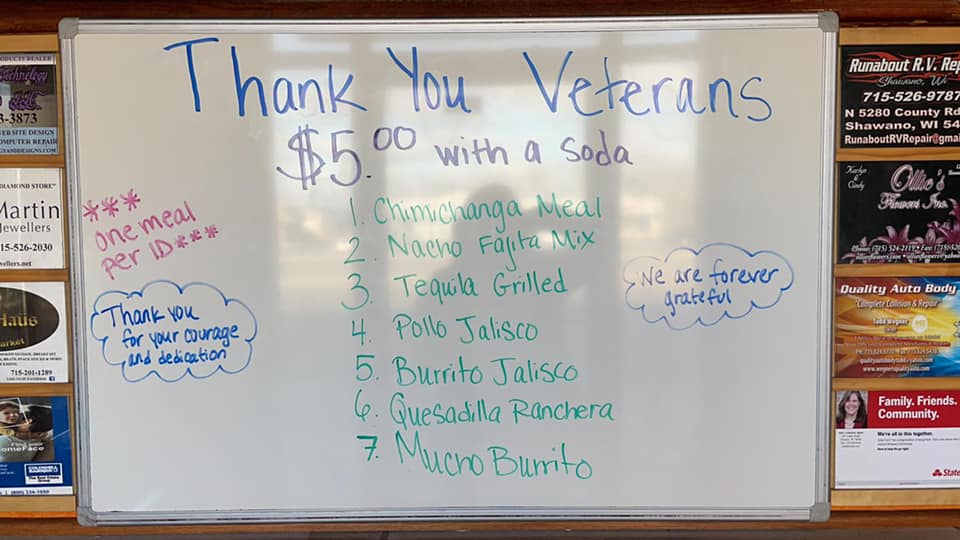 Thank You Veterans
$5.00 with a soda
***
one meal
per ID***
1. Chimichanga Meal
2. Nacho Fajita Mix
3. Tequila Grilled
4. Pollo Jalisco
5. Burrito Jalisco
6. Quesadilla Ranchera
7. Mucho Burrito
Thank you
for your courage
and dedication
We are forever
grateful
Technology
3-3873
WEB SITE DESIGN
COMPUTER REPAIR
DIAMOND STORE"
Martin
Jewellers
15-526-2030
Haus
715-201-1289
COLDWELL
BANKER
Runabout R.V. Rep
Shawano, Wi
715-526-9787
N 5280 County Rd
Shawano, WI 54
RunaboutRVRepair@gmai
Karlyn
&
Cindy
Ollie's
Flowers Inc.
Quality Auto Body
"Complete Collision & Repair"
Todd Wegner
www.wegnersqualityauto.com
Family. Friends.
Community.
We're all in this together.
State